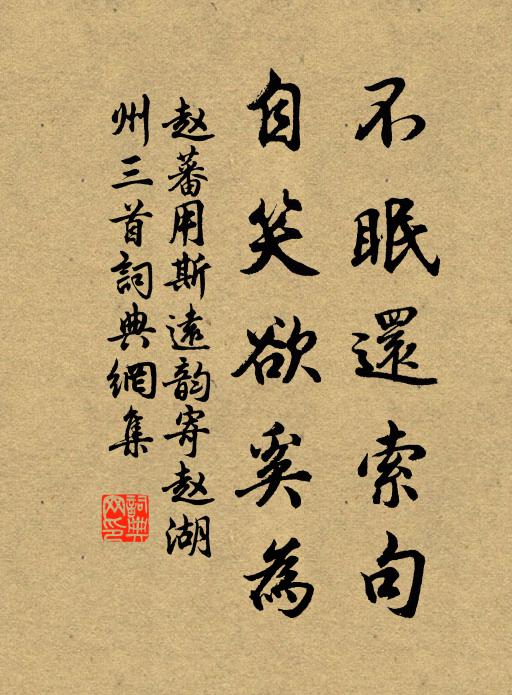 不眠還索句
自笑欲奚為
赵蕃用斯遠韵寄赵湖
州三首詞典網集
詞典網印